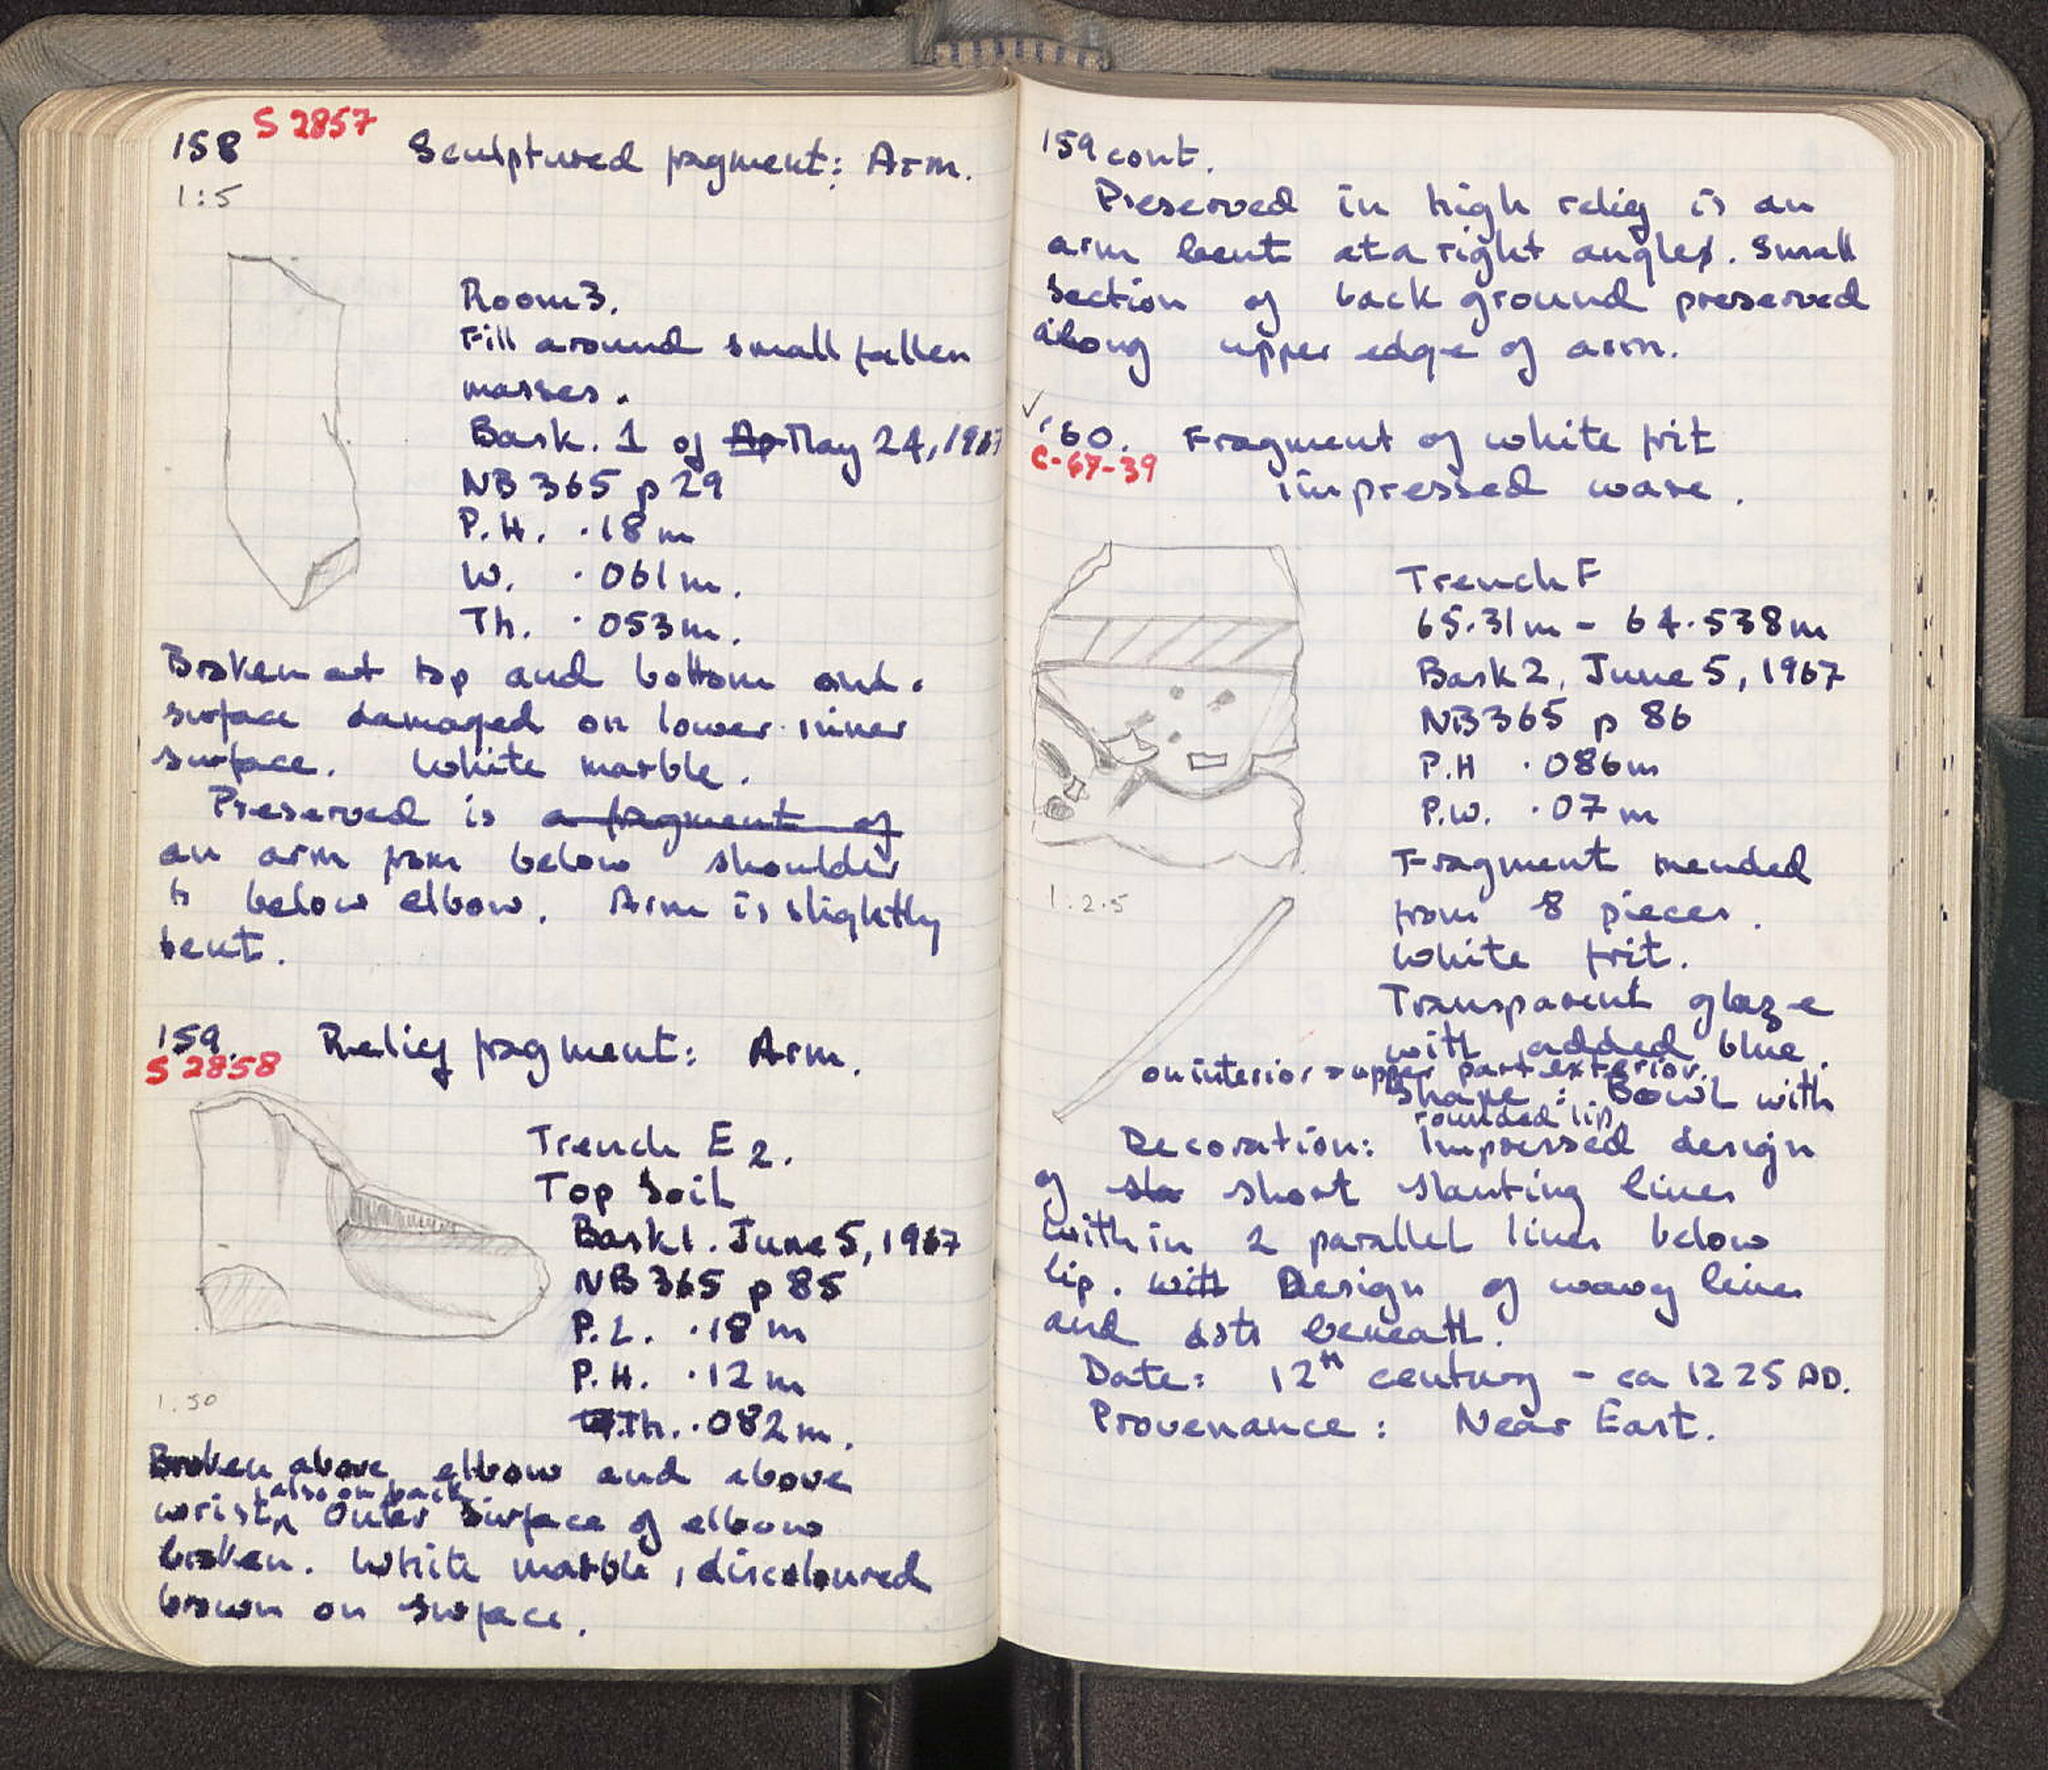 158 S 2857 Sculptured fragment: Arm.
1:5
Room 3.
Fill around small fallen
masses.
Bask. 1 of Ap May 24, 1967
NB 365 p 29
P.H. .18 m
W. .061 m.
Th. .053 m.
Broken at top and bottom and.
surface damaged on lower inner
surface. White marble.
Preserved is a fragment of
an arm from below shoulder
to below elbow. Arm is slightly
bent.
159. Relief fragment: Arm.
S 2858
Trench E 2.
Top Soil
Bask 1. June 5, 1967
NB 365 p 85
P.L. .18 m
P.H. .12 m
Th. .082 m.
1.50
Broken above elbow and above
, also on back
wrist^ Outer surface of elbow
broken. White marble, discoloured
brown on surface.
159 cont.
Preserved in high relief is an
arm bent at a right angles. Small
section of back ground preserved
along upper edge of arm.
✓
160. Fragment of white frit
C-67-39
impressed ware.
Trench F
65.31 m - 64.538 m
Bask 2, June 5, 1967
NB 365 p 86
P.H .086 m
P.W. .07 m
Fragment mended
1.2.5
from 8 pieces.
White frit.
Transparent glaze
with added blue.
on interior + upper part exterior.
Shape: Bowl with
rounded lip
Decoration: Impressed design
of sla short slanting lines
within 2 parallel lines below
lip. with Design of wavy lines
and dots beneath.
Date: 12th century - ca 1225 AD.
Provenance: Near East.